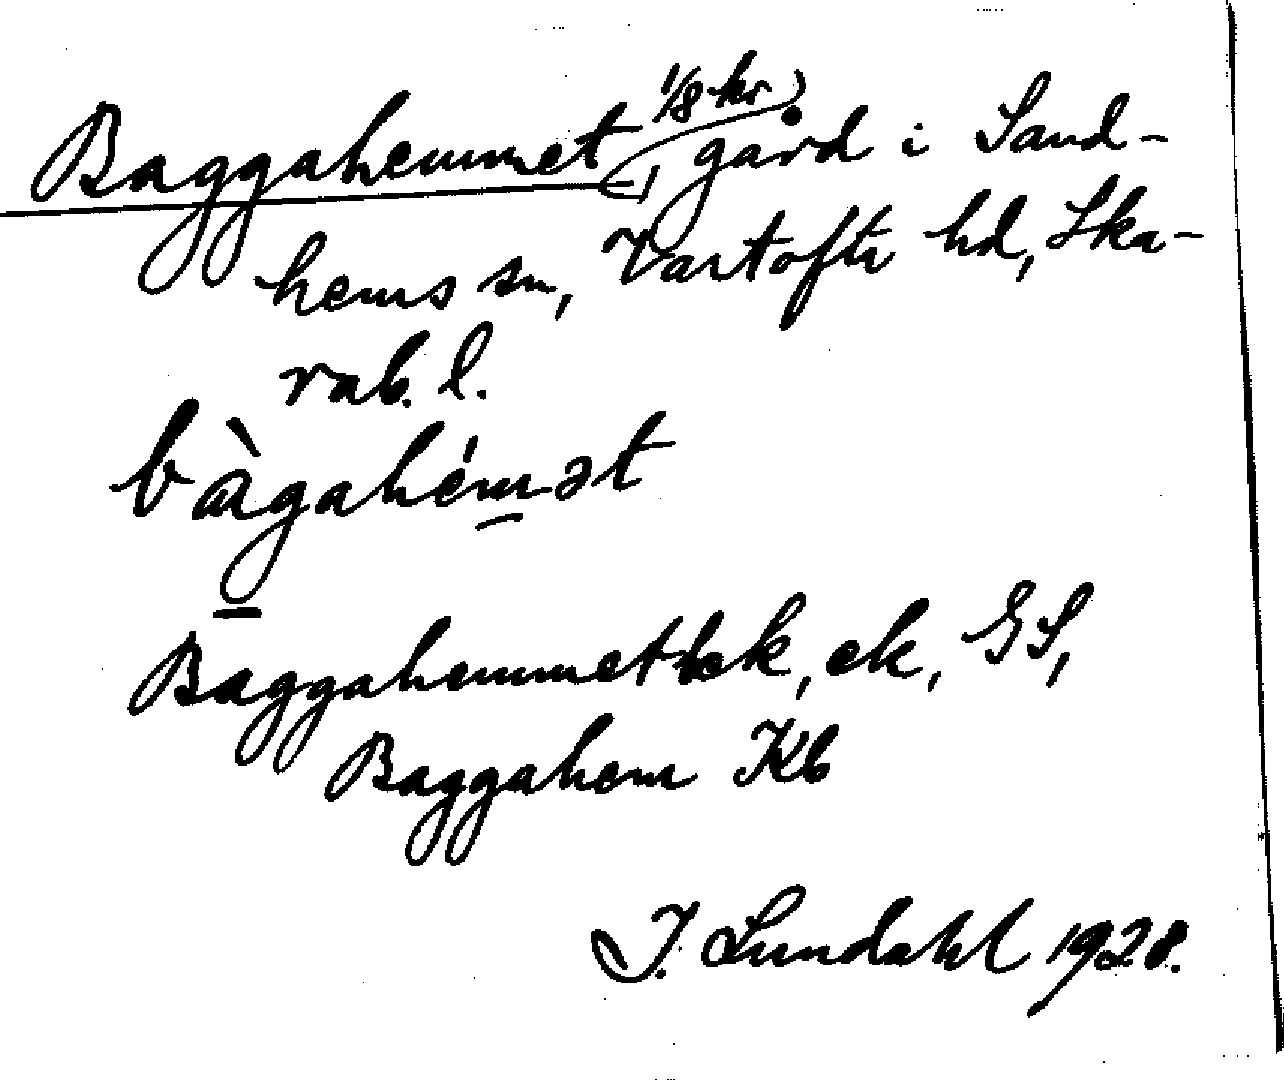 Baggahemmet, 1/8 kr, gård i Sand-
hems sn, Vartofta hd, Ska-
rab. l.
bàgahémət
Baggahemmet bek, ek, GS,
Baggahem Kb
I. Lundahl 1928.